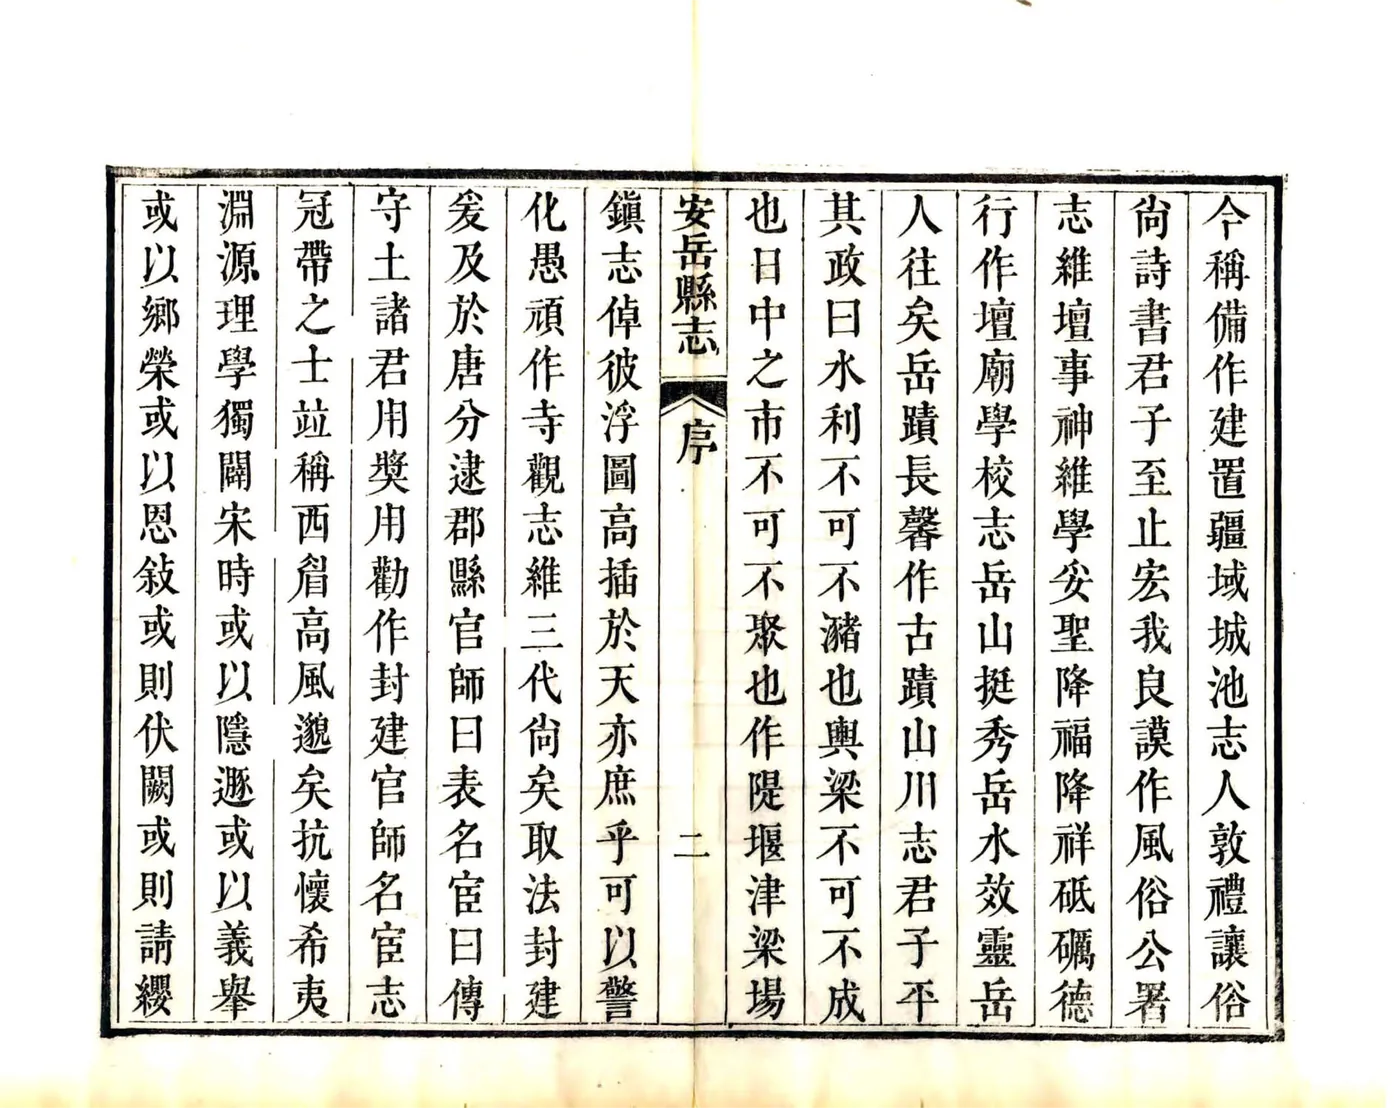 今稱備作建置疆域城池志人敦禮讓俗
尙詩書君子至止宏我良謨作風俗公署
志維壇事神維學妥聖降福降祥砥礪德
行作壇廟學校志岳山挺秀岳水效靈岳
人往矣岳蹟長馨作古蹟山川志君子平
其政曰水利不可不瀦也輿梁不可不成
也日中之市不可不聚也作隄堰津梁場
安岳縣志
序
二
鎭志倬彼浮圖高插於天亦庶乎可以警
化愚頑作寺觀志維三代尙矣取法封建
爰及於唐分逮郡縣官師曰表名宦曰傳
守土諸君用獎用勸作封建官師名宦志
冠帶之士竝稱西眉高風邈矣抗懷希夷
淵源理學獨闢宋時或以隱遯或以義舉
或以鄉榮或以恩敍或則伏闕或則請纓